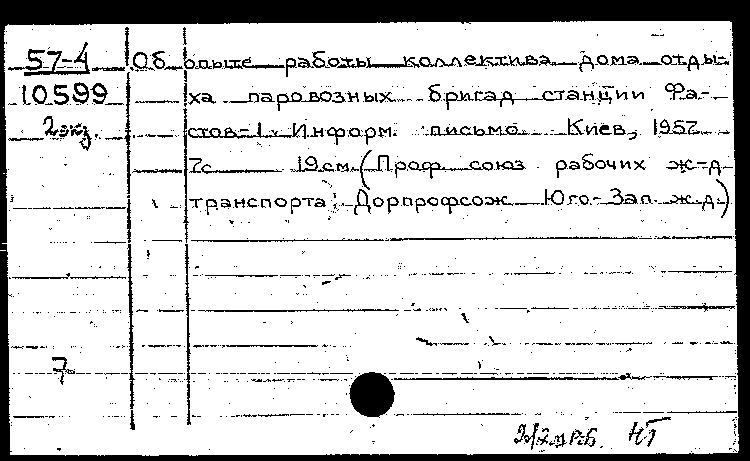 57-4 Об опыте работы коллектива дома отды-
10599 ха паровозных бригад станции Фа-
2экз. стов-1. Информ. письмо. Киев, 1957.
7с 19см. (Проф. союз рабочих ж-д
транспорта. Дорпрофсож Юго-Зап. ж.д.)
7
НТ